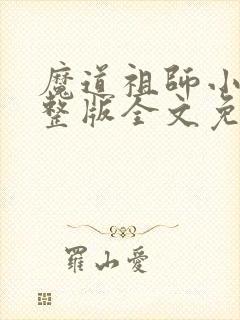 魔道祖師小
整版全文免
羅山愛